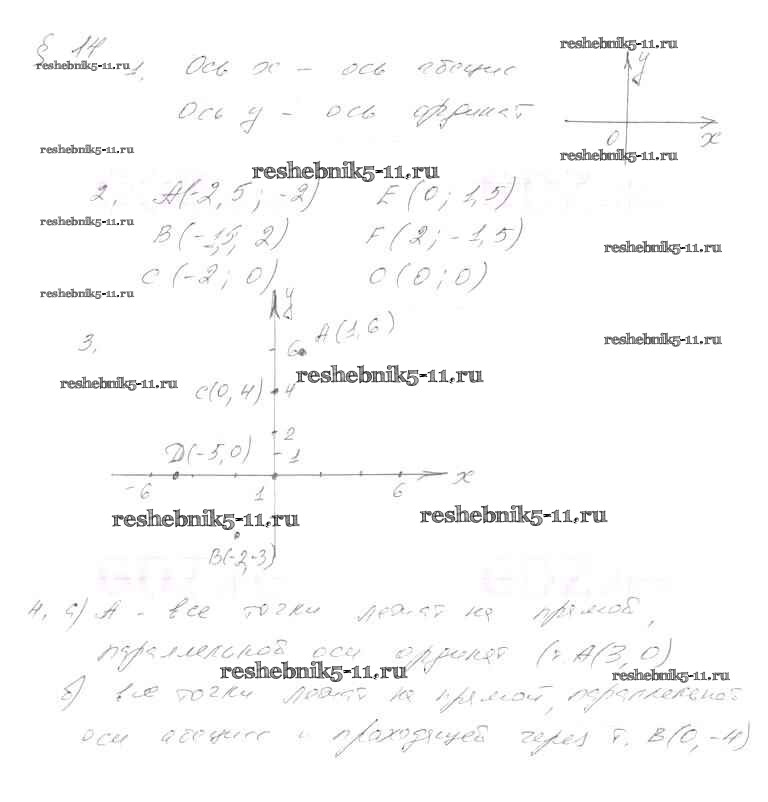 § 14
reshebnik5-11.ru
reshebnik5-11.ru
1. Ось x – ось абсцисс
Ось y – ось ординат
y
0
x
reshebnik5-11.ru
reshebnik5-11.ru
reshebnik5-11.ru
2. A(-2,5; -2) E(0; 1,5)
reshebnik5-11.ru
B(-1,5; 2) F(2; -1,5)
reshebnik5-11.ru
C(-2; 0) O(0; 0)
reshebnik5-11.ru
y
3. 6 A(1,6)
reshebnik5-11.ru
reshebnik5-11.ru
reshebnik5-11.ru
C(0,4) 4
2
D(-5,0) 1
-6 1 6 x
reshebnik5-11.ru
reshebnik5-11.ru
B(-2,-3)
4. а) A – все точки лежат на прямой,
параллельной оси ординат (т. A(3,0)
reshebnik5-11.ru
reshebnik5-11.ru
б) все точки лежат на прямой, параллельной
оси абсцисс и проходящей через т. B(0,-4)